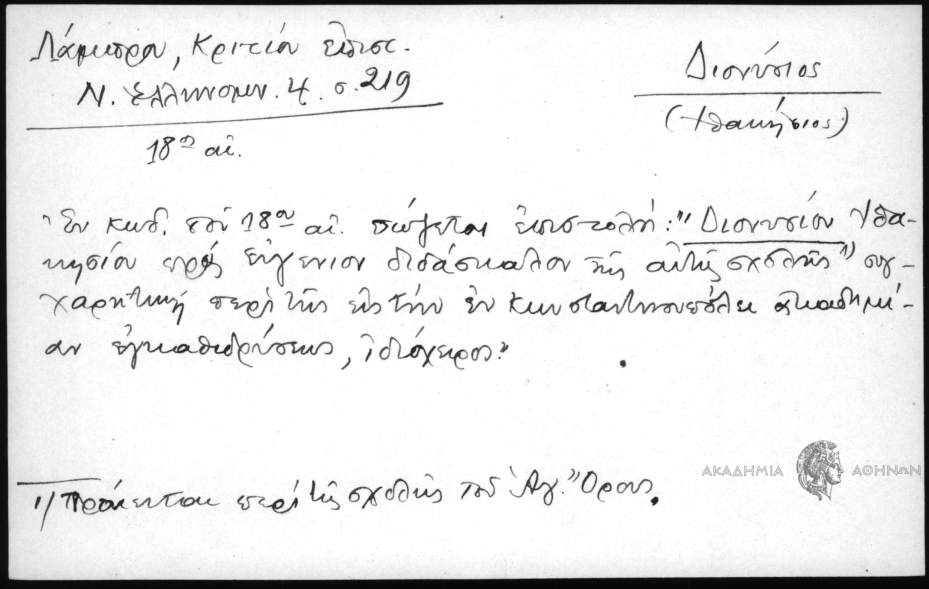 Λάμπρου, Κριτίου ἐπισ.
Ν. Ἑλληνομν. 4. σ. 219
18ου αἰ.
Διονύσιος
(Ἰθακήσιος)
"Ἐν κώδ. τοῦ 18ου αἰ. σώζεται ἐπιστολή: "Διονυσίου Ἰθα-
κησίου πρὸς Εὐγένιον διδάσκαλον τῆς αὐτῆς σχολῆς 1) συγ-
χαρητική περὶ τῆς εἰς τὴν ἐν Κωνσταντινουπόλει ἀκαδημί-
αν ἐγκαθιδρύσεως, ἰδιόχειρος."
1) Πρόκειται περὶ τῆς σχολῆς τοῦ Ἁγ. Ὄρους.
ΑΚΑΔΗΜΙΑ ΑΘΗΝΩΝ